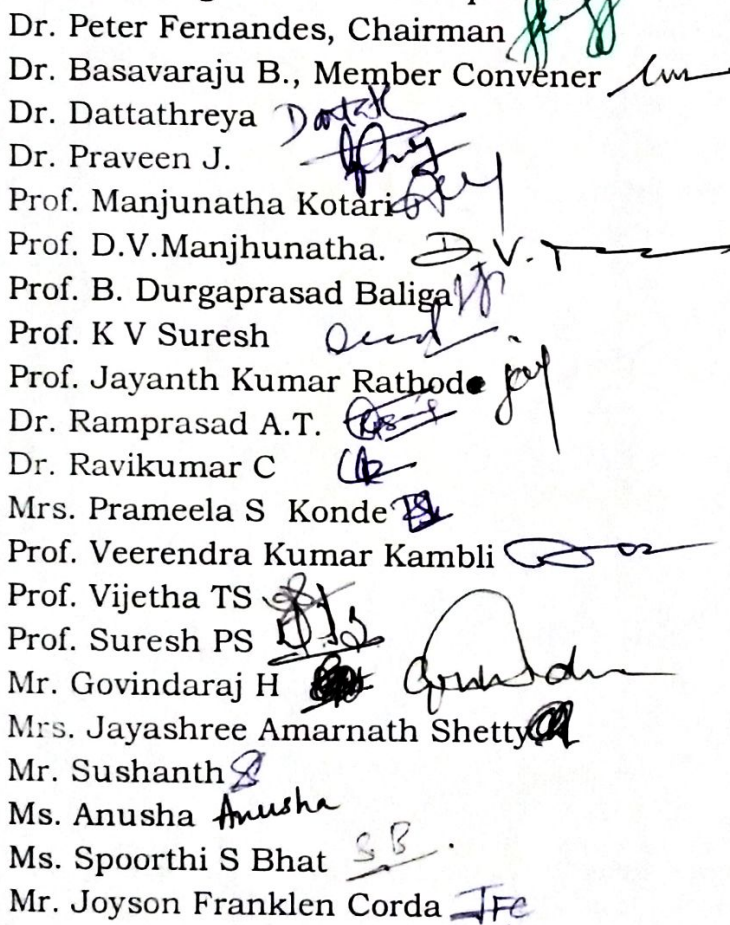 Dr. Peter Fernandes, Chairman
Dr. Basavaraju B., Member Convener
Dr. Dattathreya
Dr. Praveen J.
Prof. Manjunatha Kotari
Prof. D.V.Manjhunatha. D.V.
Prof. B. Durgaprasad Baliga
Prof. K V Suresh
Prof. Jayanth Kumar Rathod jay
Dr. Ramprasad A.T.
Dr. Ravikumar C
Mrs. Prameela S Konde
Prof. Veerendra Kumar Kambli
Prof. Vijetha TS
Prof. Suresh PS
Mr. Govindaraj H
Mrs. Jayashree Amarnath Shetty
Mr. Sushanth
Ms. Anusha Anusha
Ms. Spoorthi S Bhat S B
Mr. Joyson Franklen Corda JFC